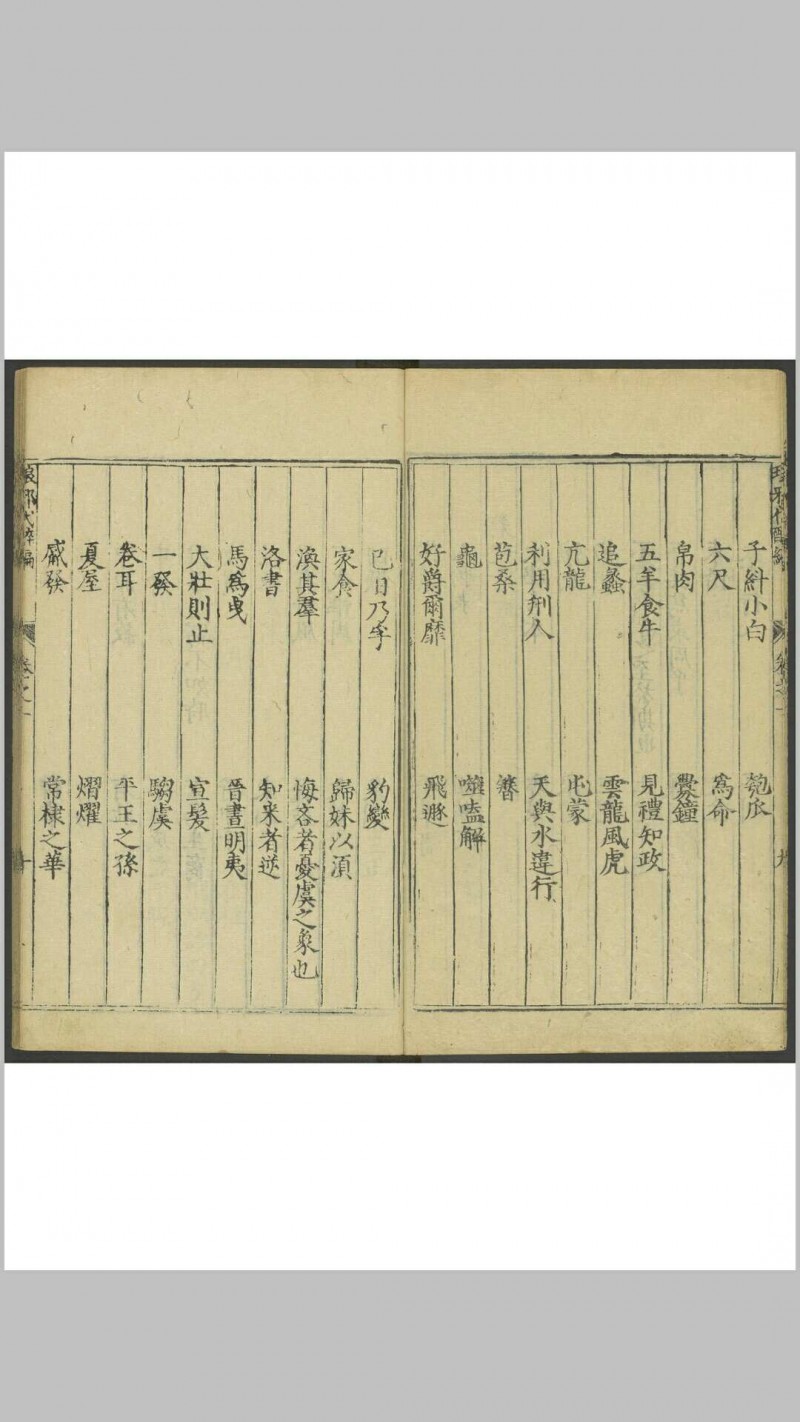 子糾小白 匏瓜
六尺 爲命
帛肉 釁鐘
五羊食牛 見禮知政
追蠡 雲龍風虎
亢龍 屯蒙
利用刑人 天與水違行
苞桑 簪
龜 噬嗑解
好爵爾靡 飛遯
巳日乃孚 豹變
家食 歸妹以湏
渙其羣 悔吝者憂虞之象也
洛書 知来者逆
馬爲曳 晉晝明夷
大壯則止 宣髮
一發 騶虞
卷耳 平王之孫
夏屋 熠燿
發 常棣之華
代醉編 卷之一 十